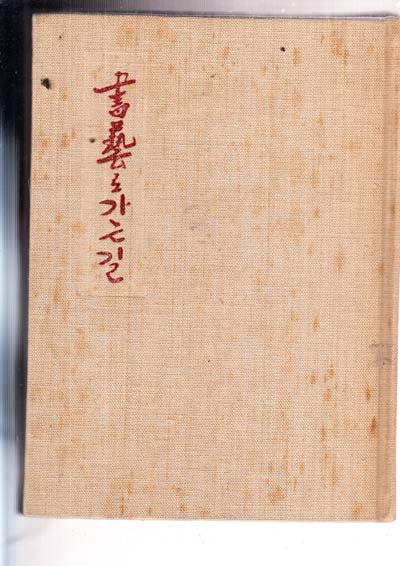 書藝로가는길